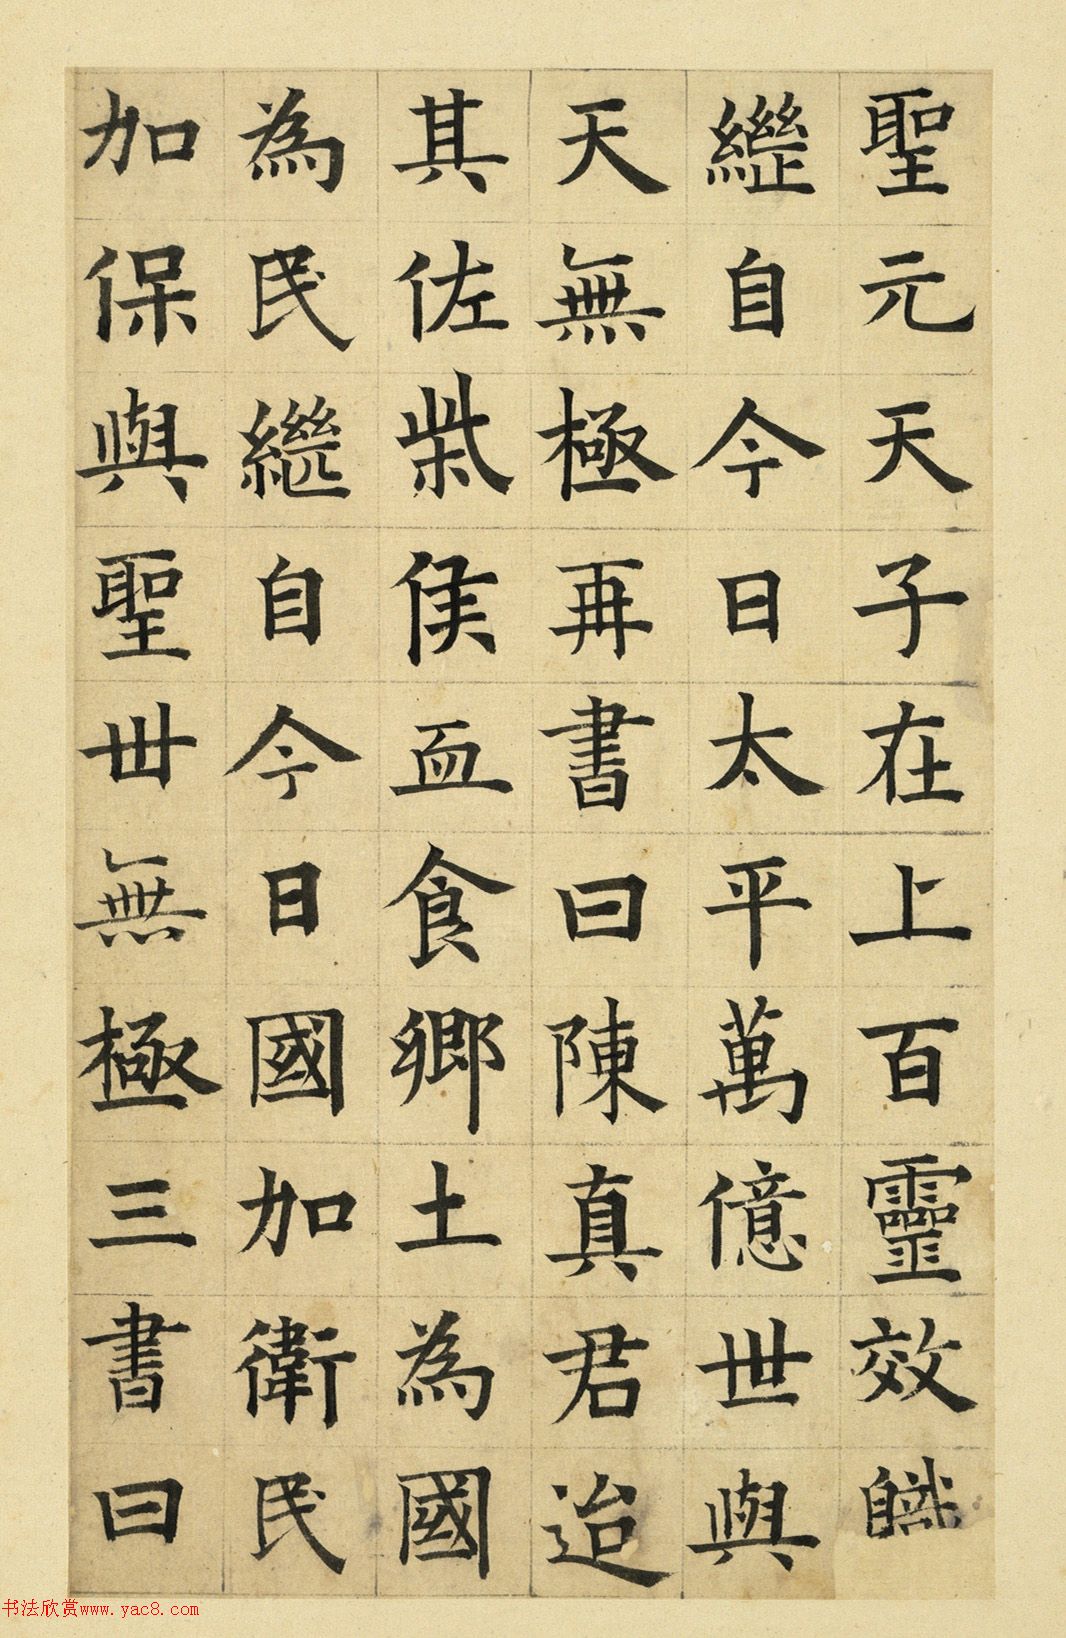 聖元天子在上百靈效職
繼自今日太平萬億世與
天無極再書曰陳真君迨
其佐柴侯血食鄉土為國
為民繼自今日國加衛民
加保與聖世無極三書曰
书法欣赏www.yac8.com